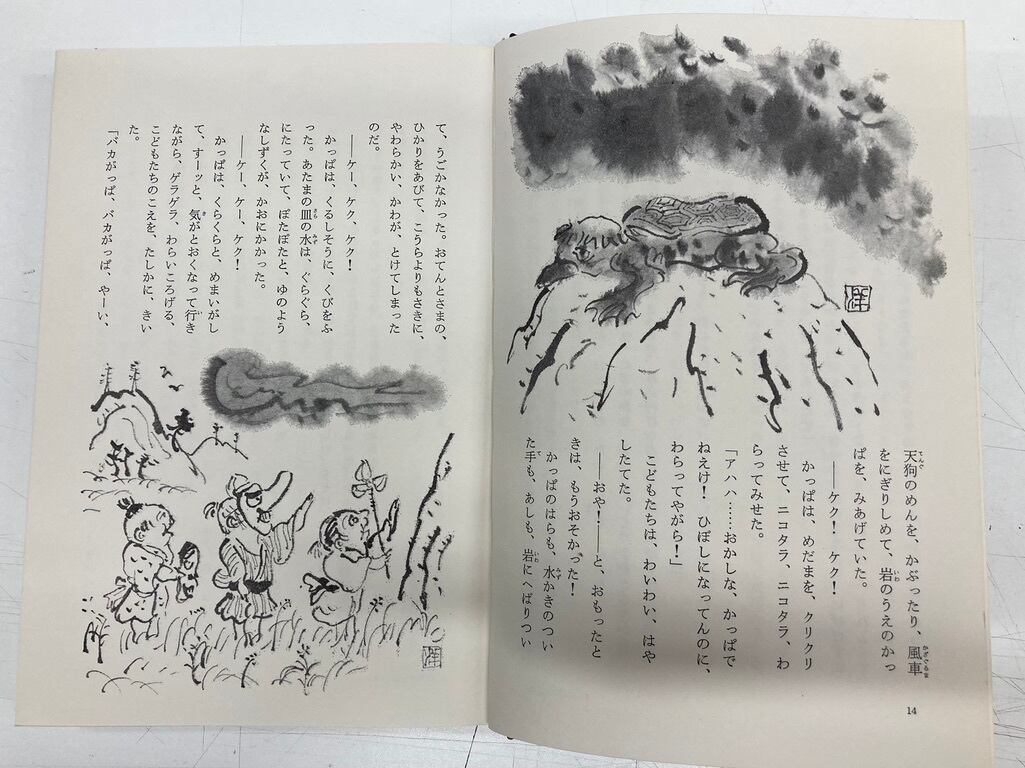 天狗のめんを、かぶったり、風車
をにぎりしめて、岩のうえのかっ
ぱを、みあげていた。
――ケク！　ケク！
かっぱは、めだまを、クリクリ
させて、ニコタラ、ニコタラ、わ
らってみせた。
「アハハ……おかしな、かっぱで
ねえけ！　ひぼしになってんのに、
わらってやがら！」
こどもたちは、わいわい、はや
したてた。
――おや！――と、おもったと
きは、もうおそかった！
かっぱのはらも、水かきのつい
た手も、あしも、岩にへばりつい
14
て、うごかなかった。おてんとさまの、
ひかりをあびて、こうらよりもさきに、
やわらかい、かわが、とけてしまった
のだ。
――ケー、ケク、ケク！
かっぱは、くるしそうに、くびをふ
った。あたまの皿の水は、ぐらぐら、
にたっていて、ぽたぽたと、ゆのよう
なしずくが、かおにかかった。
――ケー、ケー、ケク！
かっぱは、くらくらと、めまいがし
て、すーッと、気がとおくなって行き
ながら、ゲラゲラ、わらいころげる、
こどもたちのこえを、たしかに、きい
た。
「バカがっぱ、バカがっぱ、やーい、